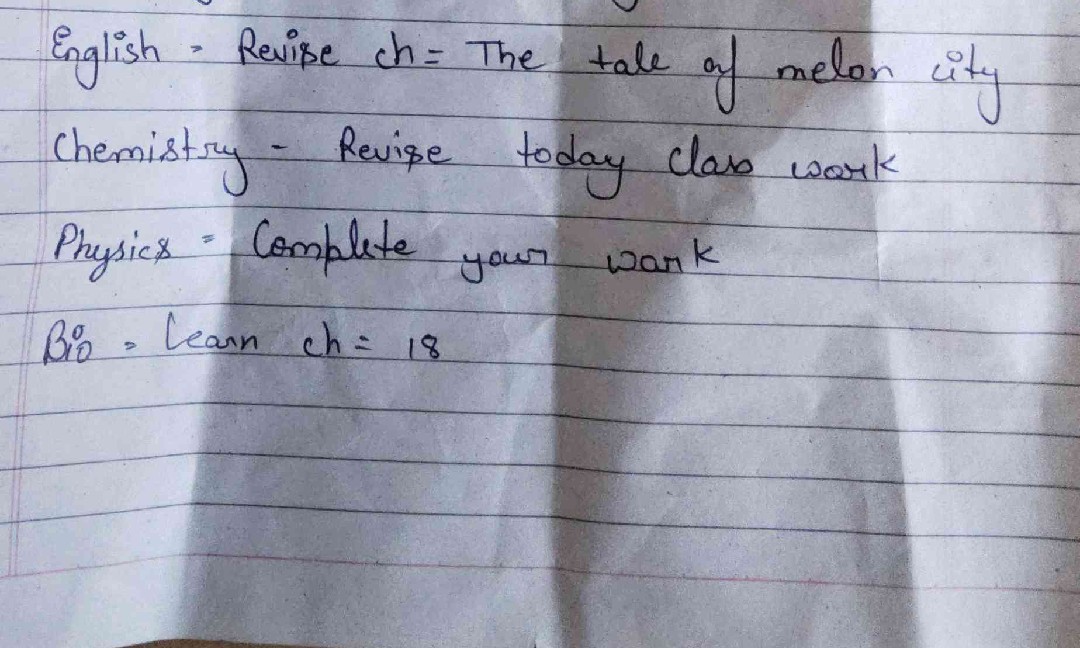 English = Revise ch = The tale of melon city
Chemistry - Revise today class work
Physics = Complete your work
Bio = Learn ch = 18